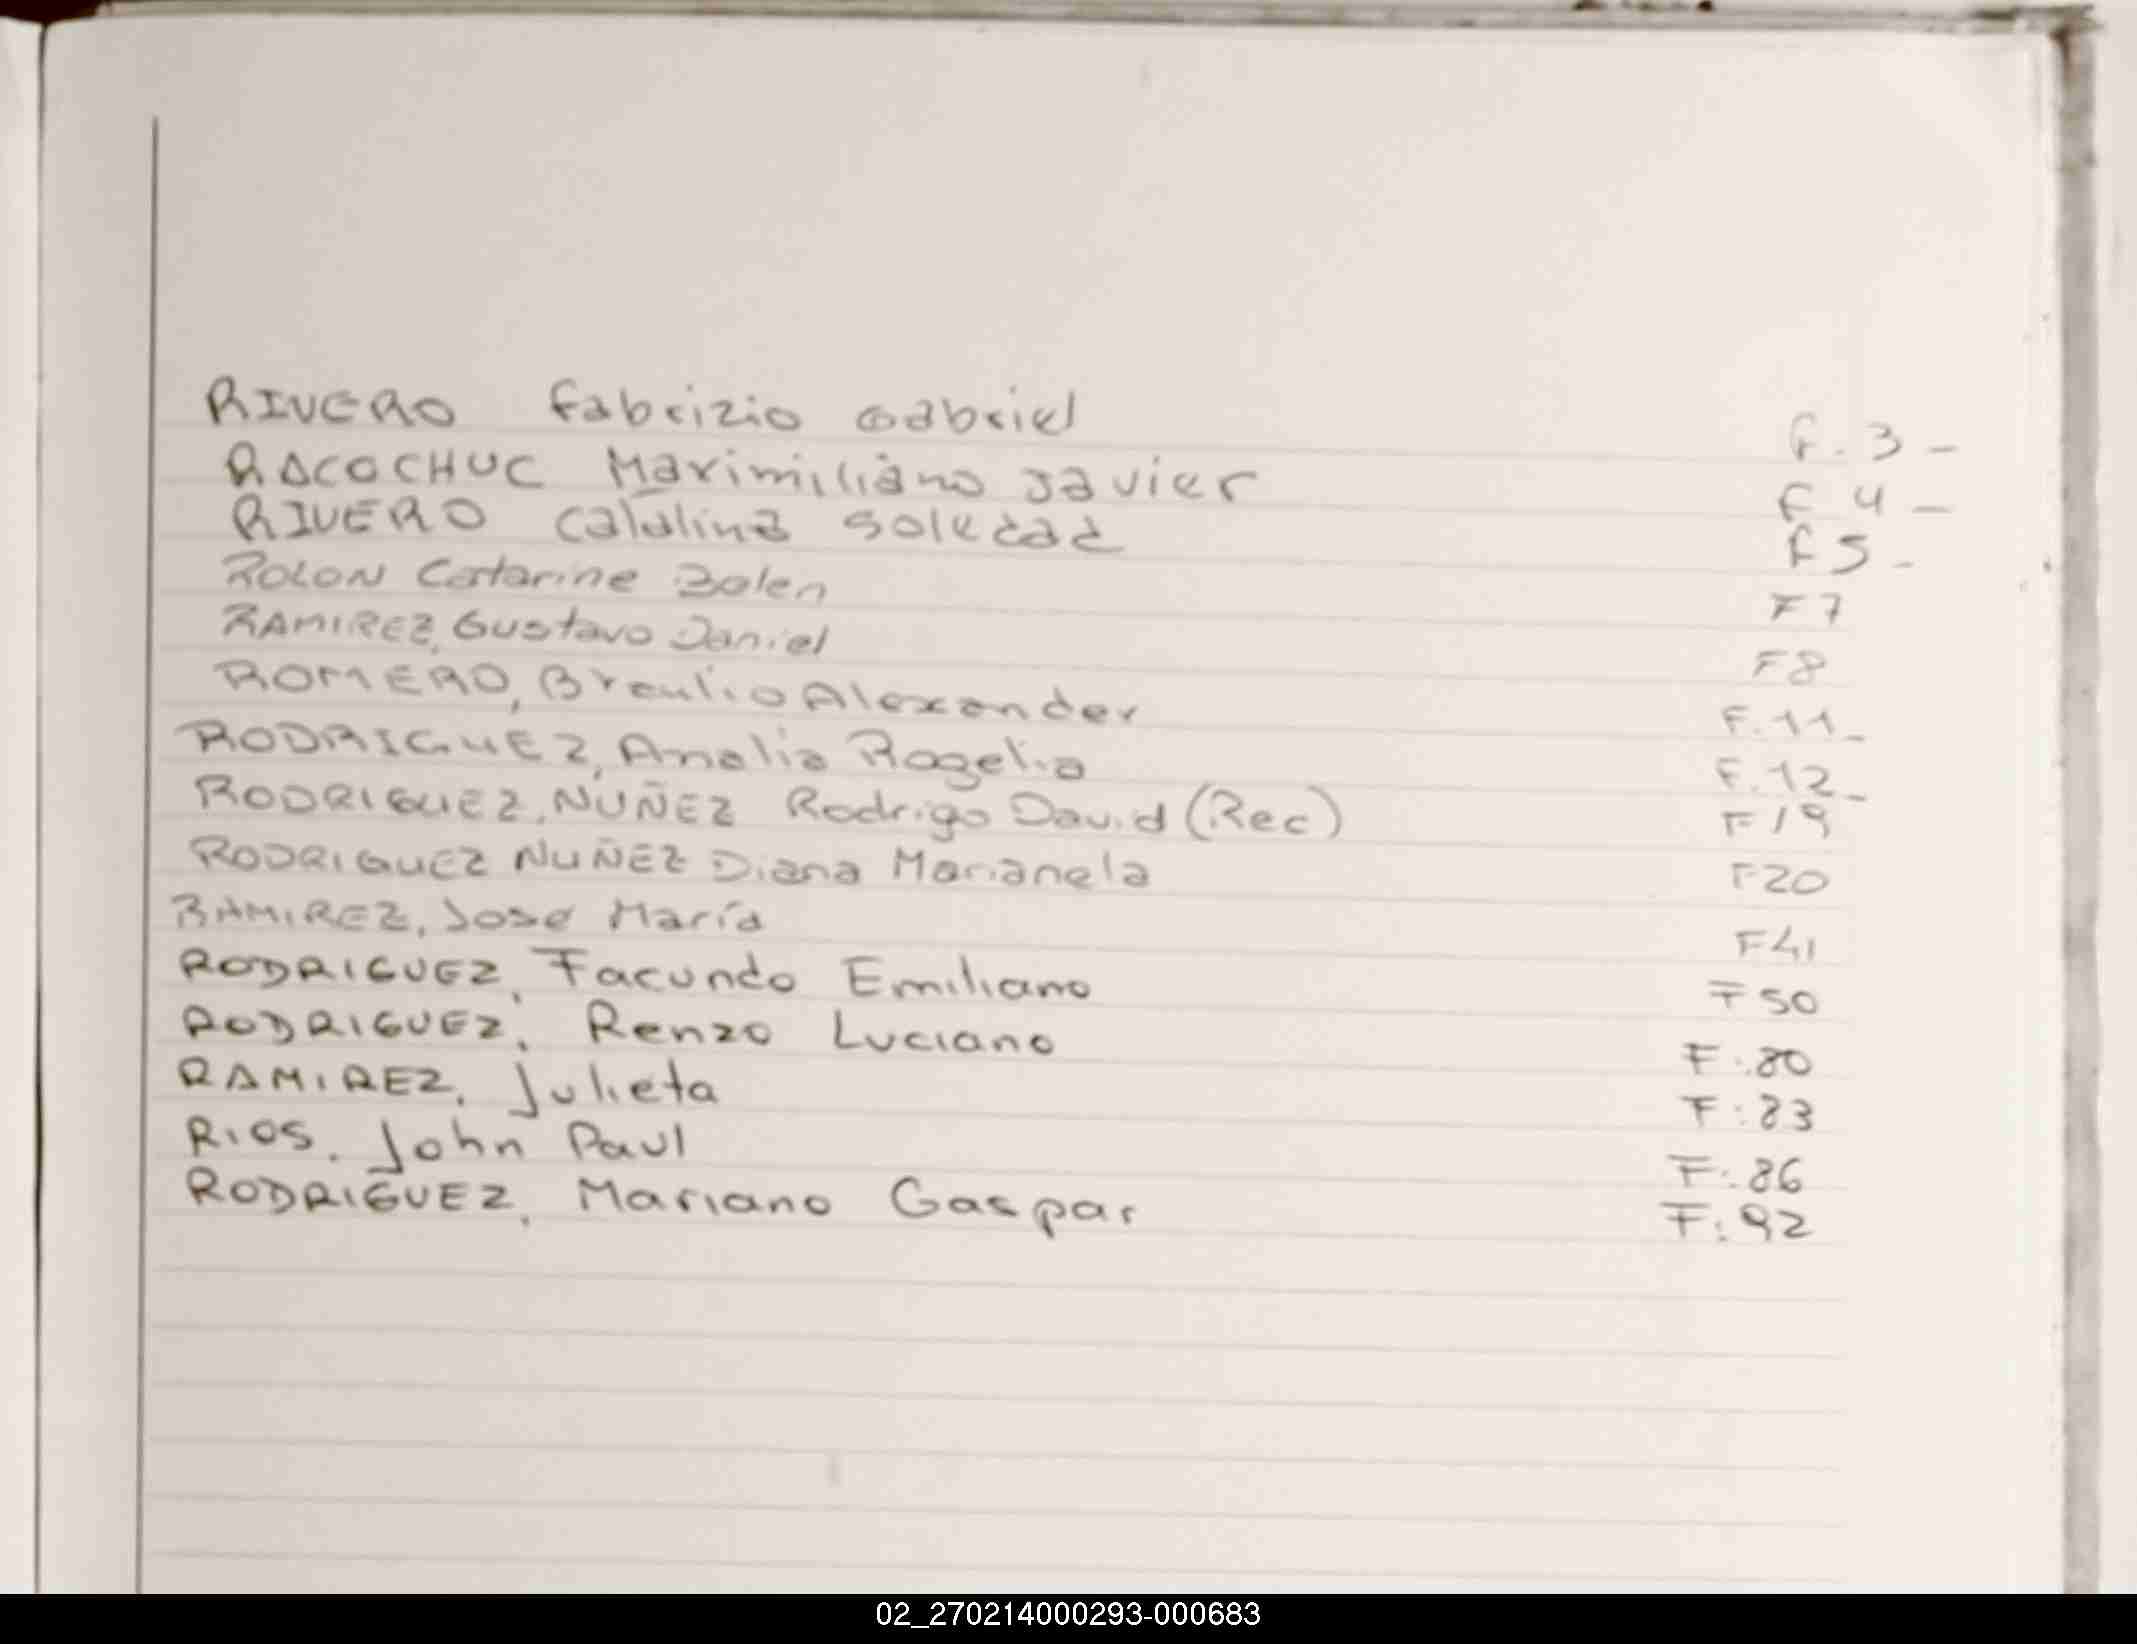 RIVERO Fabrizio Gabriel F. 3 -
RACOCHUC Maximiliano Javier F 4 -
RIVERO Catalina Soledad F 5 -
ROLON Catarine Belen F 7
RAMIREZ, Gustavo Daniel F8
ROMERO, Braulio Alexander F. 11_
RODRIGUEZ, Analia Rogelia F. 12_
RODRIGUEZ, NUÑEZ Rodrigo David (Rec) F 19
RODRIGUEZ NUÑEZ Diana Marianela F20
RAMIREZ, Jose María F41
RODRIGUEZ, Facundo Emiliano F 50
RODRIGUEZ, Renzo Luciano F:.80
RAMIREZ, Julieta F:83
RIOS, John Paul F:.86
RODRIGUEZ, Mariano Gaspar F:92
02_270214000293-000683